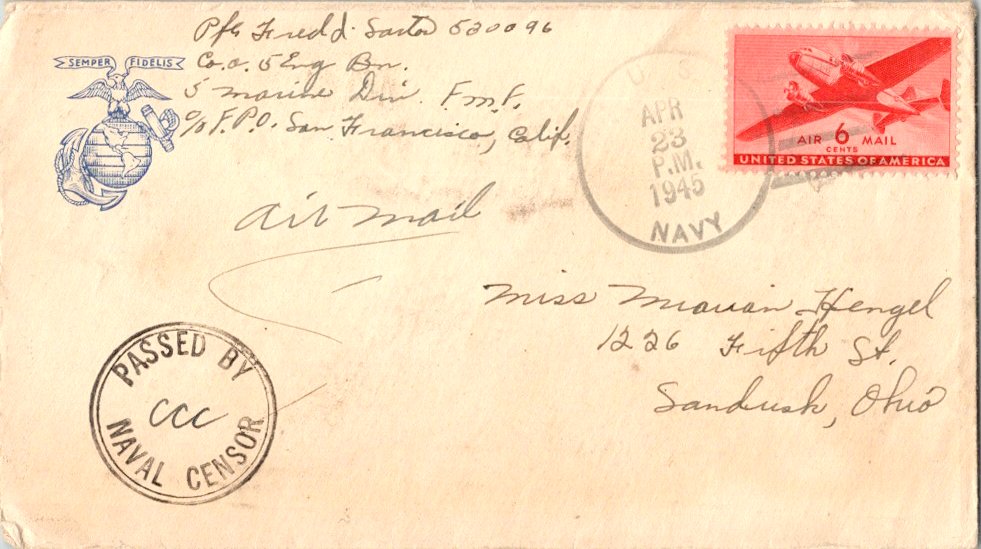 Pfc Fredd J. Sartor 520096
Co. a. 5 Eng Bn.
5 Marine Div. F.M.F.
c/o F.P.O. San Francisco, Calif.
SEMPER FIDELIS
U. S.
APR
23
P.M.
1945
NAVY
AIR 6 MAIL
CENTS
UNITED STATES OF AMERICA
Air Mail
Miss Marian Hengel
1226 Fifth St.
Sandusk, Ohio
PASSED BY
CCC
NAVAL CENSOR